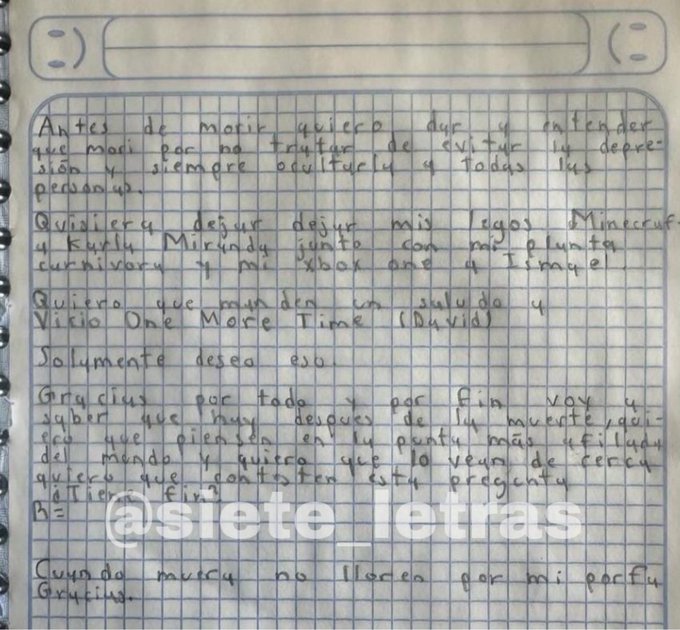 Antes de morir quiero dar y entender
que mori por no tratar de evitar la depre-
sión y siempre ocultarla a todas las
personas.
Quisiera dejar dejar mis legos Minecraf-
a Karla Miranda junto con mi planta
carnivora y mi xbox one a Ismael.
Quiero que manden un saludo a
Vicio One More Time (David)
Solamente deseo eso.
Gracias por todo y por fin voy a
saber que hay despues de la muerte, qui-
ero que piensen en la punta más afilada
del mundo y quiero que lo vean de cerca
quiero que contesten esta pregunta
¿Tiene fin?
R=
@siete_letras
Cuando muera no lloren por mi porfa
Gracias.